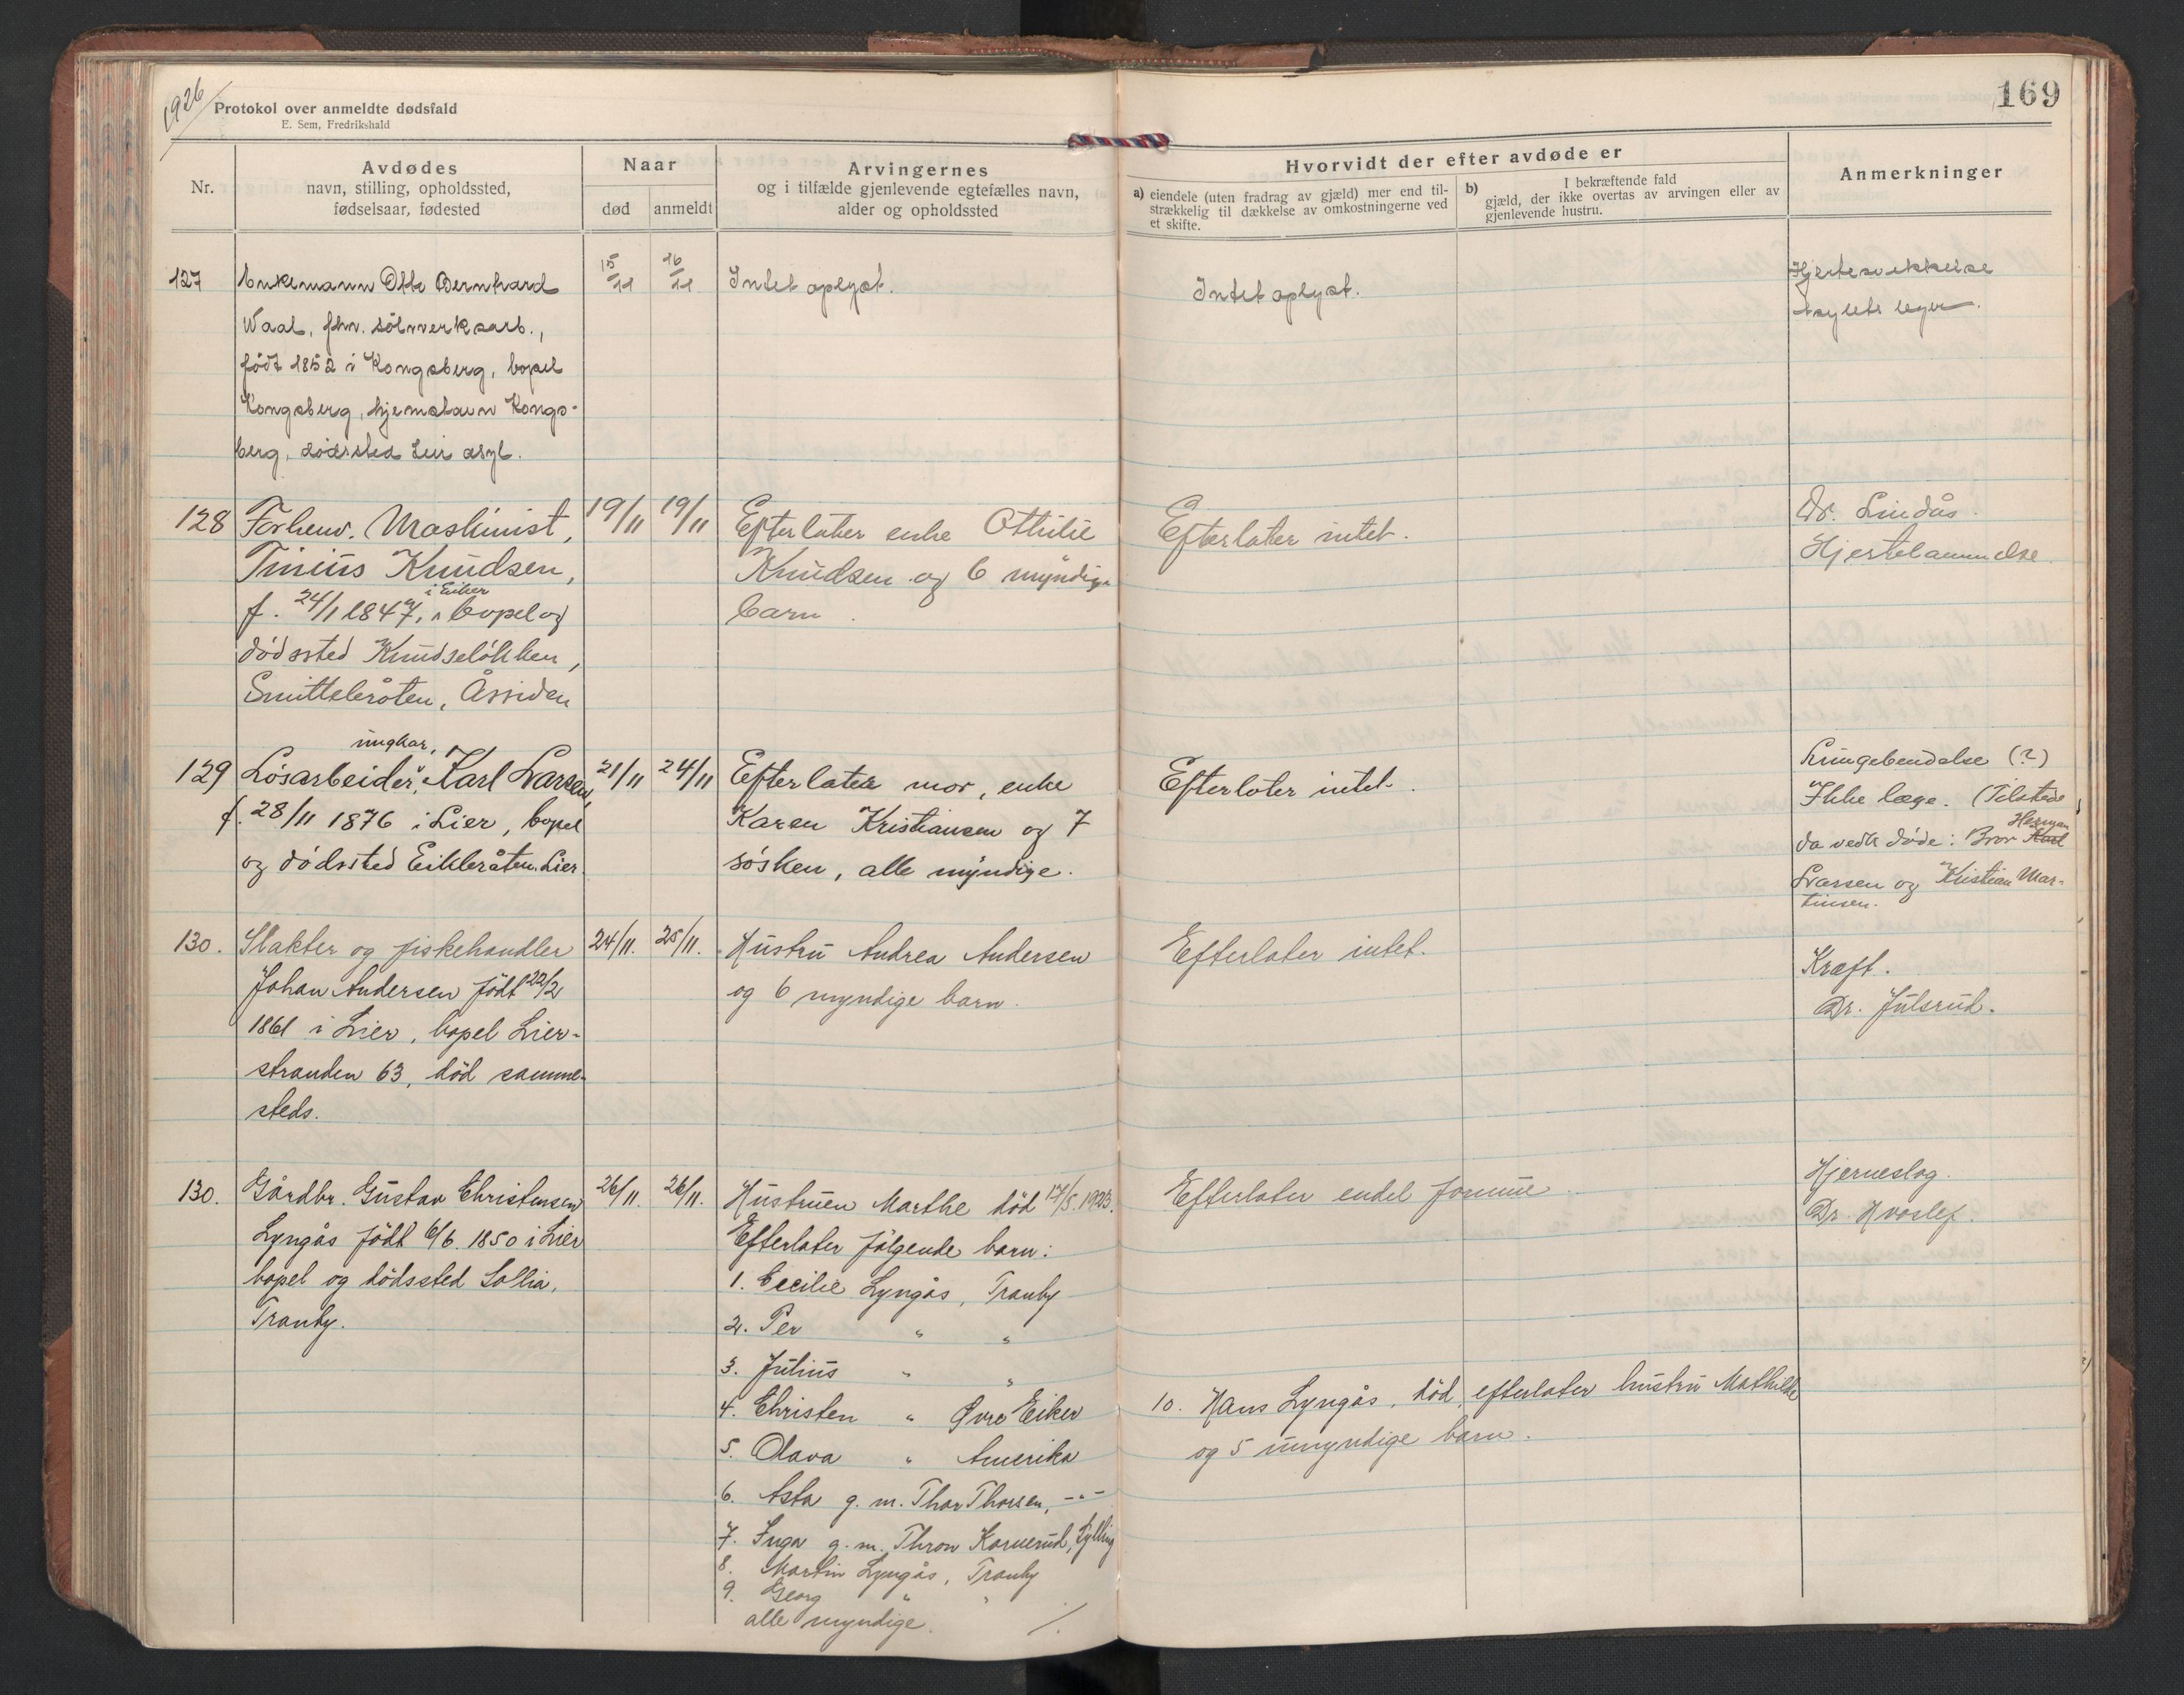 1926
Protokol over anmeldte dødsfald
E. Sem, Fredrikshald
169
Nr.
Avdødes
navn, stilling, opholdssted,
fødselsaar, fødested
Naar
død
anmeldt
Arvingernes
og i tilfælde gjenlevende egtefælles navn,
alder og opholdssted
Hvorvidt der efter avdøde er
a) eiendele (uten fradrag av gjæld) mer end til-
strækkelig til dækkelse av omkostningerne ved
et skifte.
b) I bekræftende fald
gjæld, der ikke overtas av arvingen eller av
gjenlevende hustru.
Anmerkninger
127
Enkemann Otto Bernhard
Waal, fhv. sölvverksarb.,
född 1852 i Kongsberg, bopel
Kongsberg, hjemstavn Kongs-
berg, dödssted Lier asyl.
15/11
16/11
Intet oplyst.
Intet oplyst.
Hjertesvekkelse
Asylets leger.
128
Forhenv. Maskinist,
Tinius Knudsen,
i Eiker
f. 24/1 1847, ^ bopel og
dødssted Knudseløkken,
Smittebråten, Åssiden
19/11
19/11
Efterlater enke Othilie
Knudsen og 6 myndige
barn.
Efterlater intet.
Dr. Lindås.
Hjertelammelse.
129
ungkar,
Løsarbeider, Karl Larsen,
f. 28/11 1876 i Lier, bopel
og dødssted Eikbråten, Lier.
21/11
24/11
Efterlater mor, enke
Karen Kristiansen og 7
søsken, alle myndige.
Efterlater intet.
Lungebendelse (?)
Ikke læge. (Tilstede
Herman
da vedk døde: Bror Karl
Larsen og Kristian Mar-
tinsen.
130.
Slakter og fiskehandler
Johan Andersen född 22/2
1861 i Lier, bopel Lier-
stranden 63, död samme-
steds.
24/11.
25/11.
Hustru Andrea Andersen
og 6 myndige barn.
Efterlater intet.
Kræft.
Dr. Julsrud.
130.
Gårdbr. Gustav Christensen
Lyngås född 6/6. 1850 i Lier
bopel og dödssted Sollia,
Tranby.
26/11.
26/11.
Hustruen Marthe död 17/5.1923.
Efterlater fölgende barn:
1. Cecilie Lyngås, Tranby
2. Per " "
3. Julius " "
4. Christen " Øvre Eiker
5. Olava " Amerika
6. Asta g. m. Thor Thorsen, -"-
7. Inga g. m. Thron Korverud, Sylling
8. Martin Lyngås, Tranby
9. Georg " "
alle myndige. ./.
Efterlater endel formue.
10. Hans Lyngås, död, efterlater hustru Mathilde
og 5 umyndige barn.
Hjerneslag.
Dr. Hvoslef.